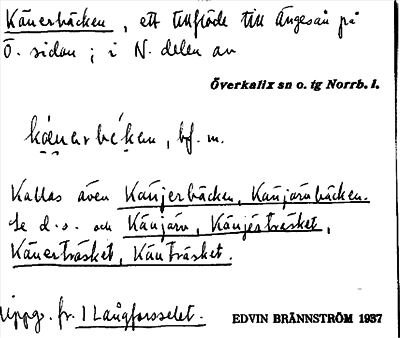 Känerbäcken, ett tillflöde till Ängesån på
Ö. sidan; i N. delen av
Överkalix sn o. tg Norrb. l.
bf. m.
Kallas även Känjerbäcken, Känjärnbäcken.
Se d.o. och Känjärn, Känjesträsket,
Känerträsket, Känträsket.
Uppg. fr. 1 Långforsselet.
EDVIN BRÄNNSTRÖM 1937